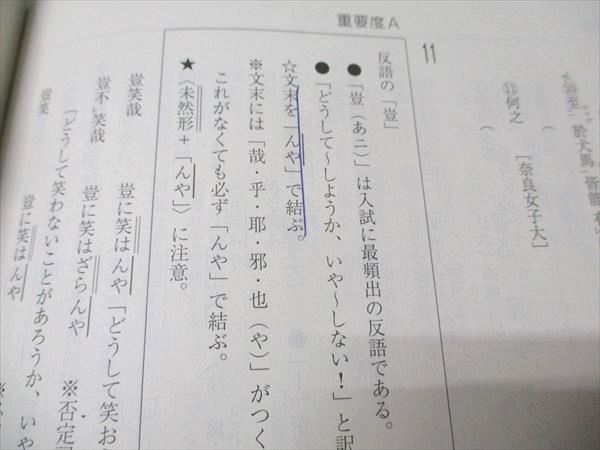 重要度A
⑩至 於犬馬 皆能有
⑪何之
［奈良女子大］
（
（
11
反語の「豈」
●「豈（あニ）」は入試に最頻出の反語である。
●「どうして〜しようか、いや〜しない！」と訳
☆文末を「んや」で結ぶ。
※文末には「哉・乎・耶・邪・也（や）」がつく
これがなくても必ず「んや」で結ぶ。
★〈未然形＋「んや」〉に注意。
豈笑哉　豈に笑はんや「どうして笑お
豈不笑哉　豈に笑はざらんや　※否定
「どうして笑わないことがあろうか、いや
豈笑　豈に笑はんや